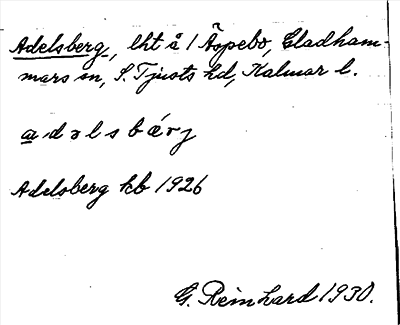 Adelsberg, lht å 1 Äspebo, Gladham-
mars sn, S. Tjusts hd, Kalmar l.
adəlsbærj
Adelsberg kb 1926
G. Reinhard 1930.